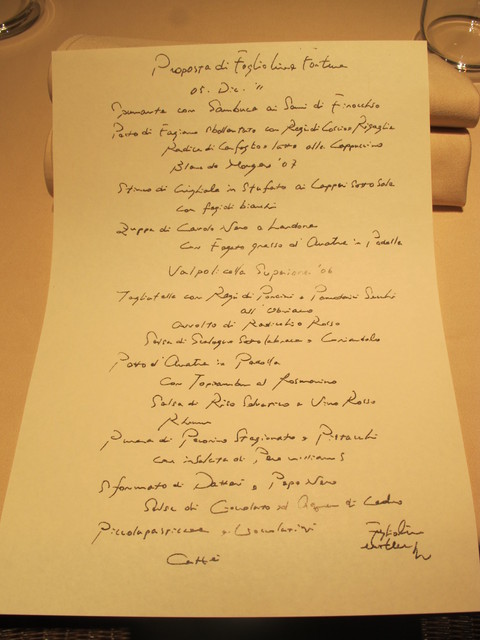 Proposta di Fogliolina Fortuna
05. Dic. '11
Spumante con Sambuca ai Semi di Finocchio
Petto di Fagiano con Ragù di
Radice di e latte alla Cappuccino
Bianco '07
di Cinghiale in Stufato ai Capperi Sotto Sale
con fagioli bianchi
Zuppa di Cavolo Nero e Lardone
con Fegato grasso d'Anatra in Padella
Valpolicella Superiore '06
Tagliatelle con Ragù di Porcini e Pomodori Secchi
all'
Avvolto di Radicchio Rosso
Salsa di e Coriandolo
Petto d'Anatra in Padella
con Topinambur al Rosmarino
Salsa di Riso Selvatico e Vino Rosso
Rhum
Purea di Pecorino Stagionato e Pistacchi
con insalata di Pera williams
Sformato di Datteri e Pepe Nero
Salsa di Cioccolato ed di Cedro
Piccola pasticceria e Cioccolatini
Caffè